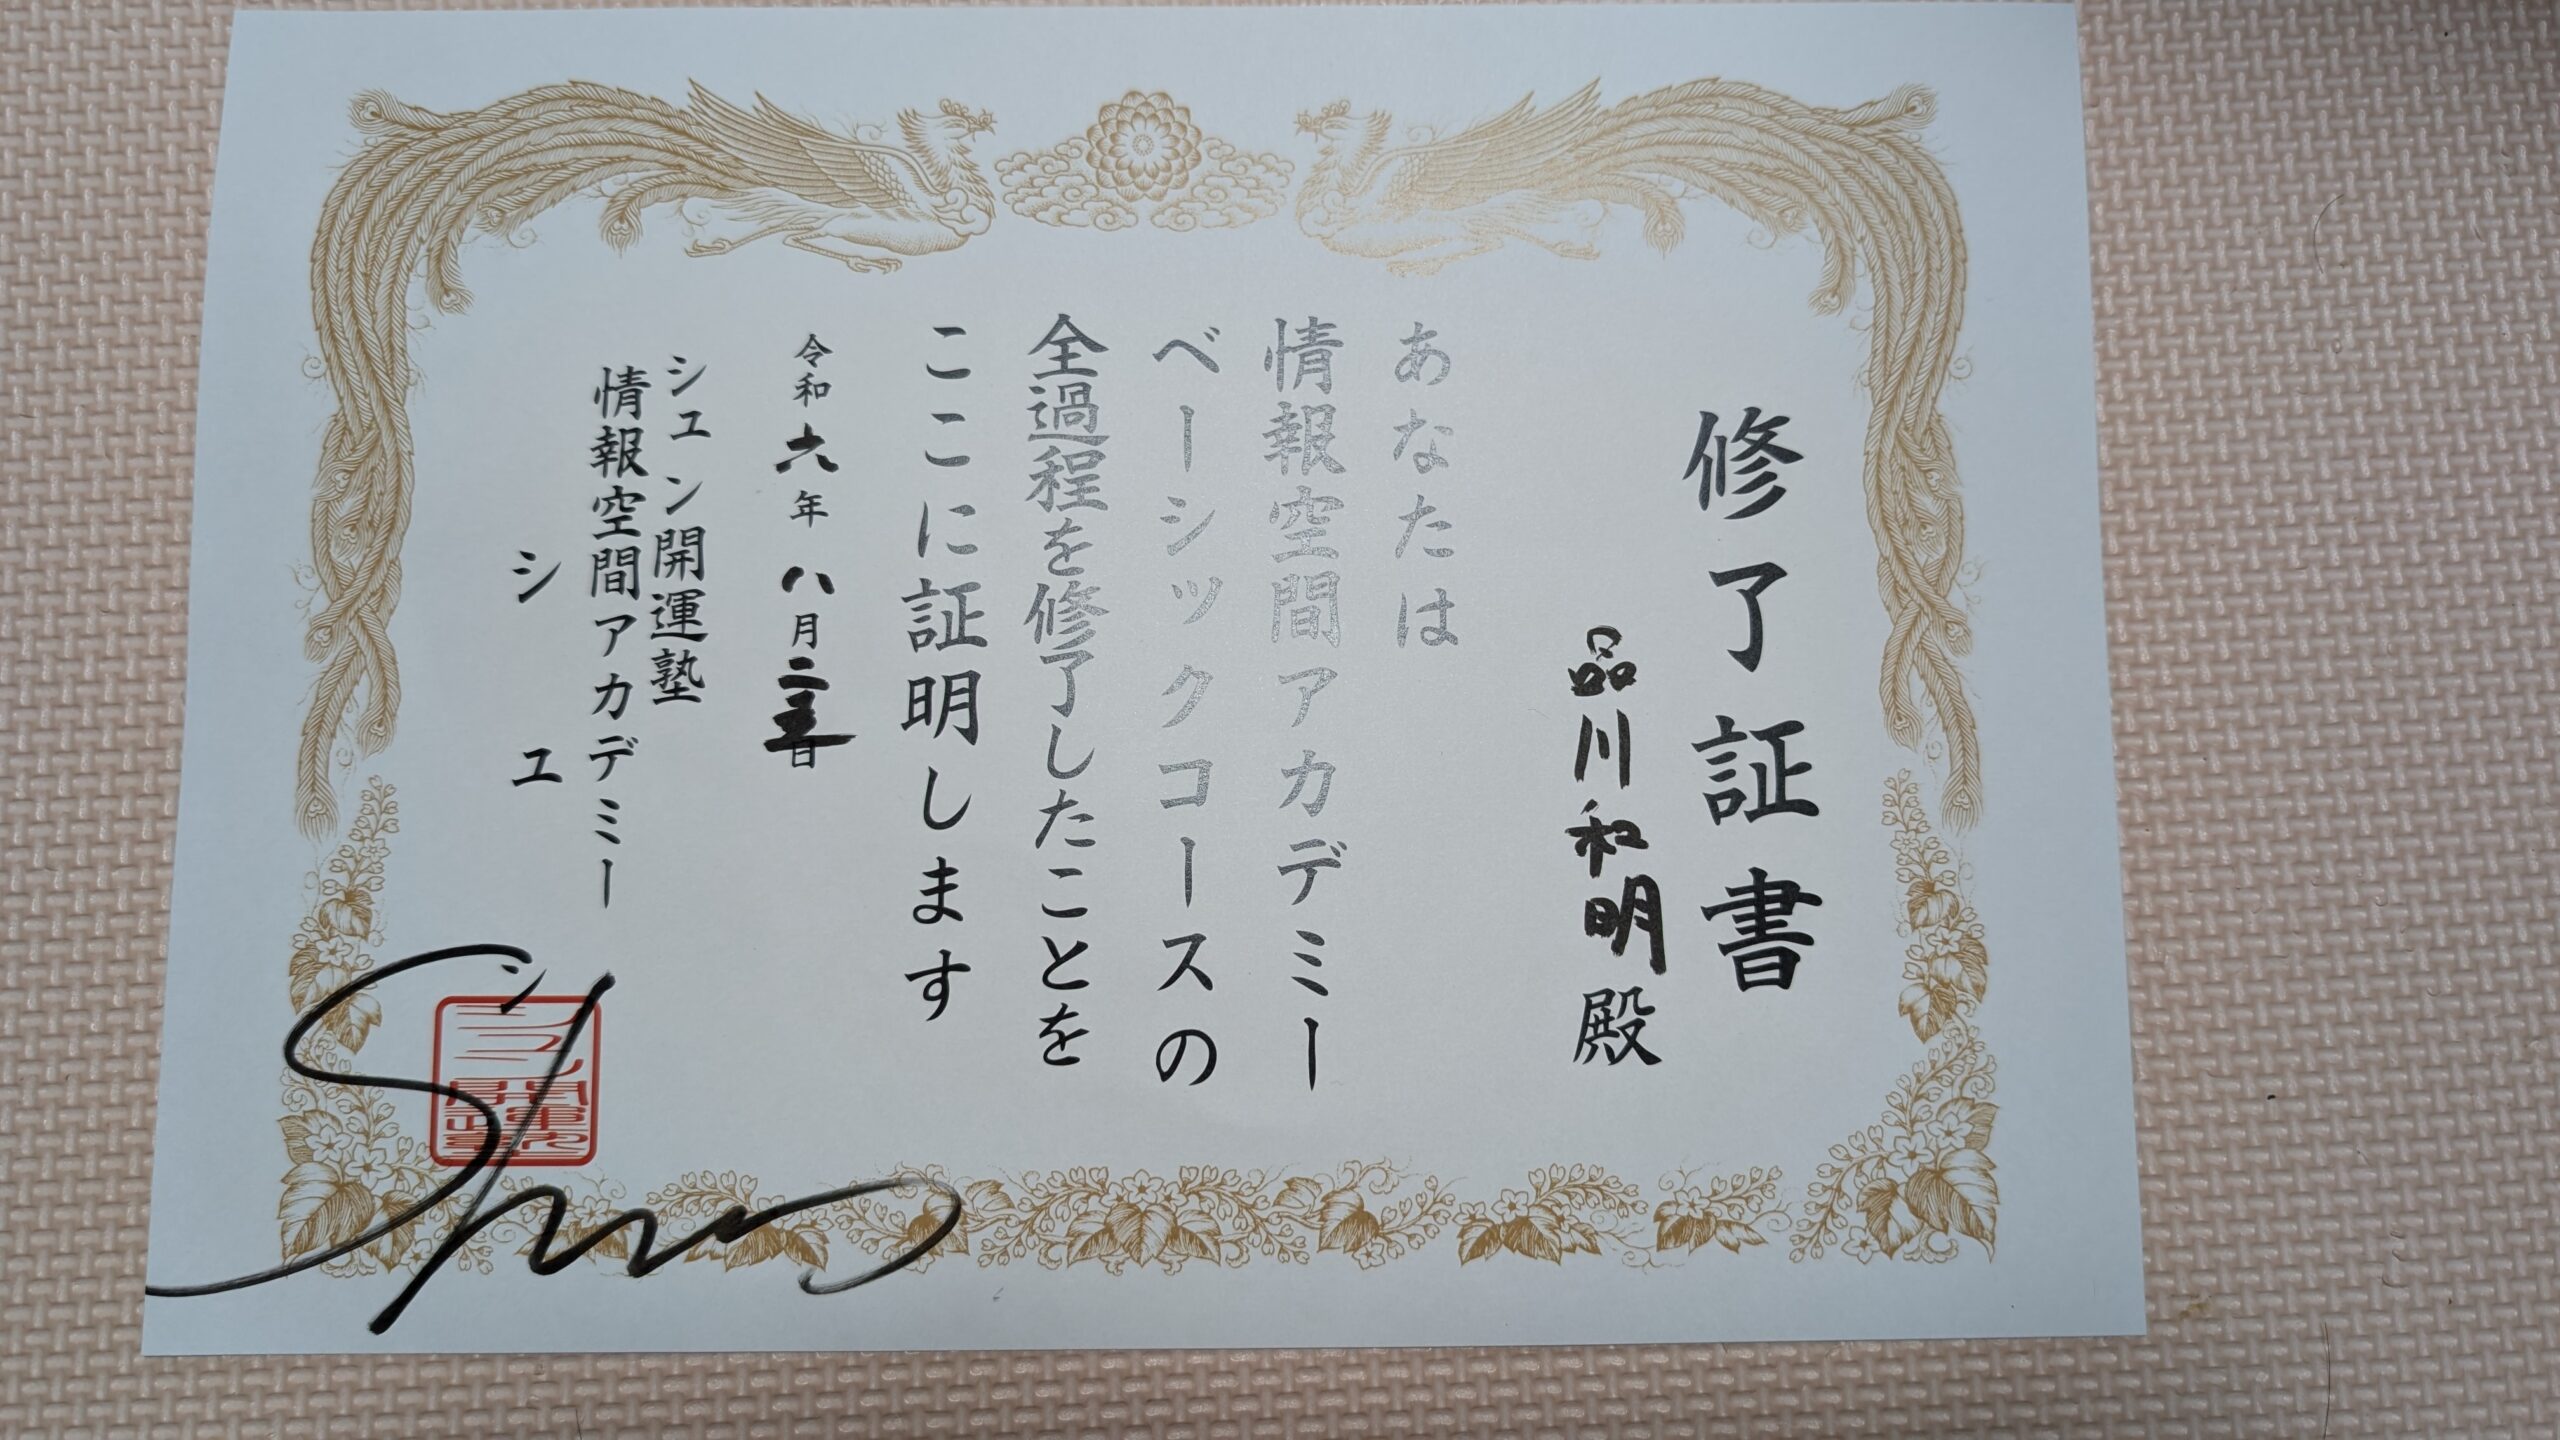 修了証書
品川和明殿
あなたは
情報空間アカデミー
ベーシックコースの
全過程を修了したことを
ここに証明します
令和六年八月二 日
シユン開運塾
情報空間アカデミー
シユン
シュン開運塾